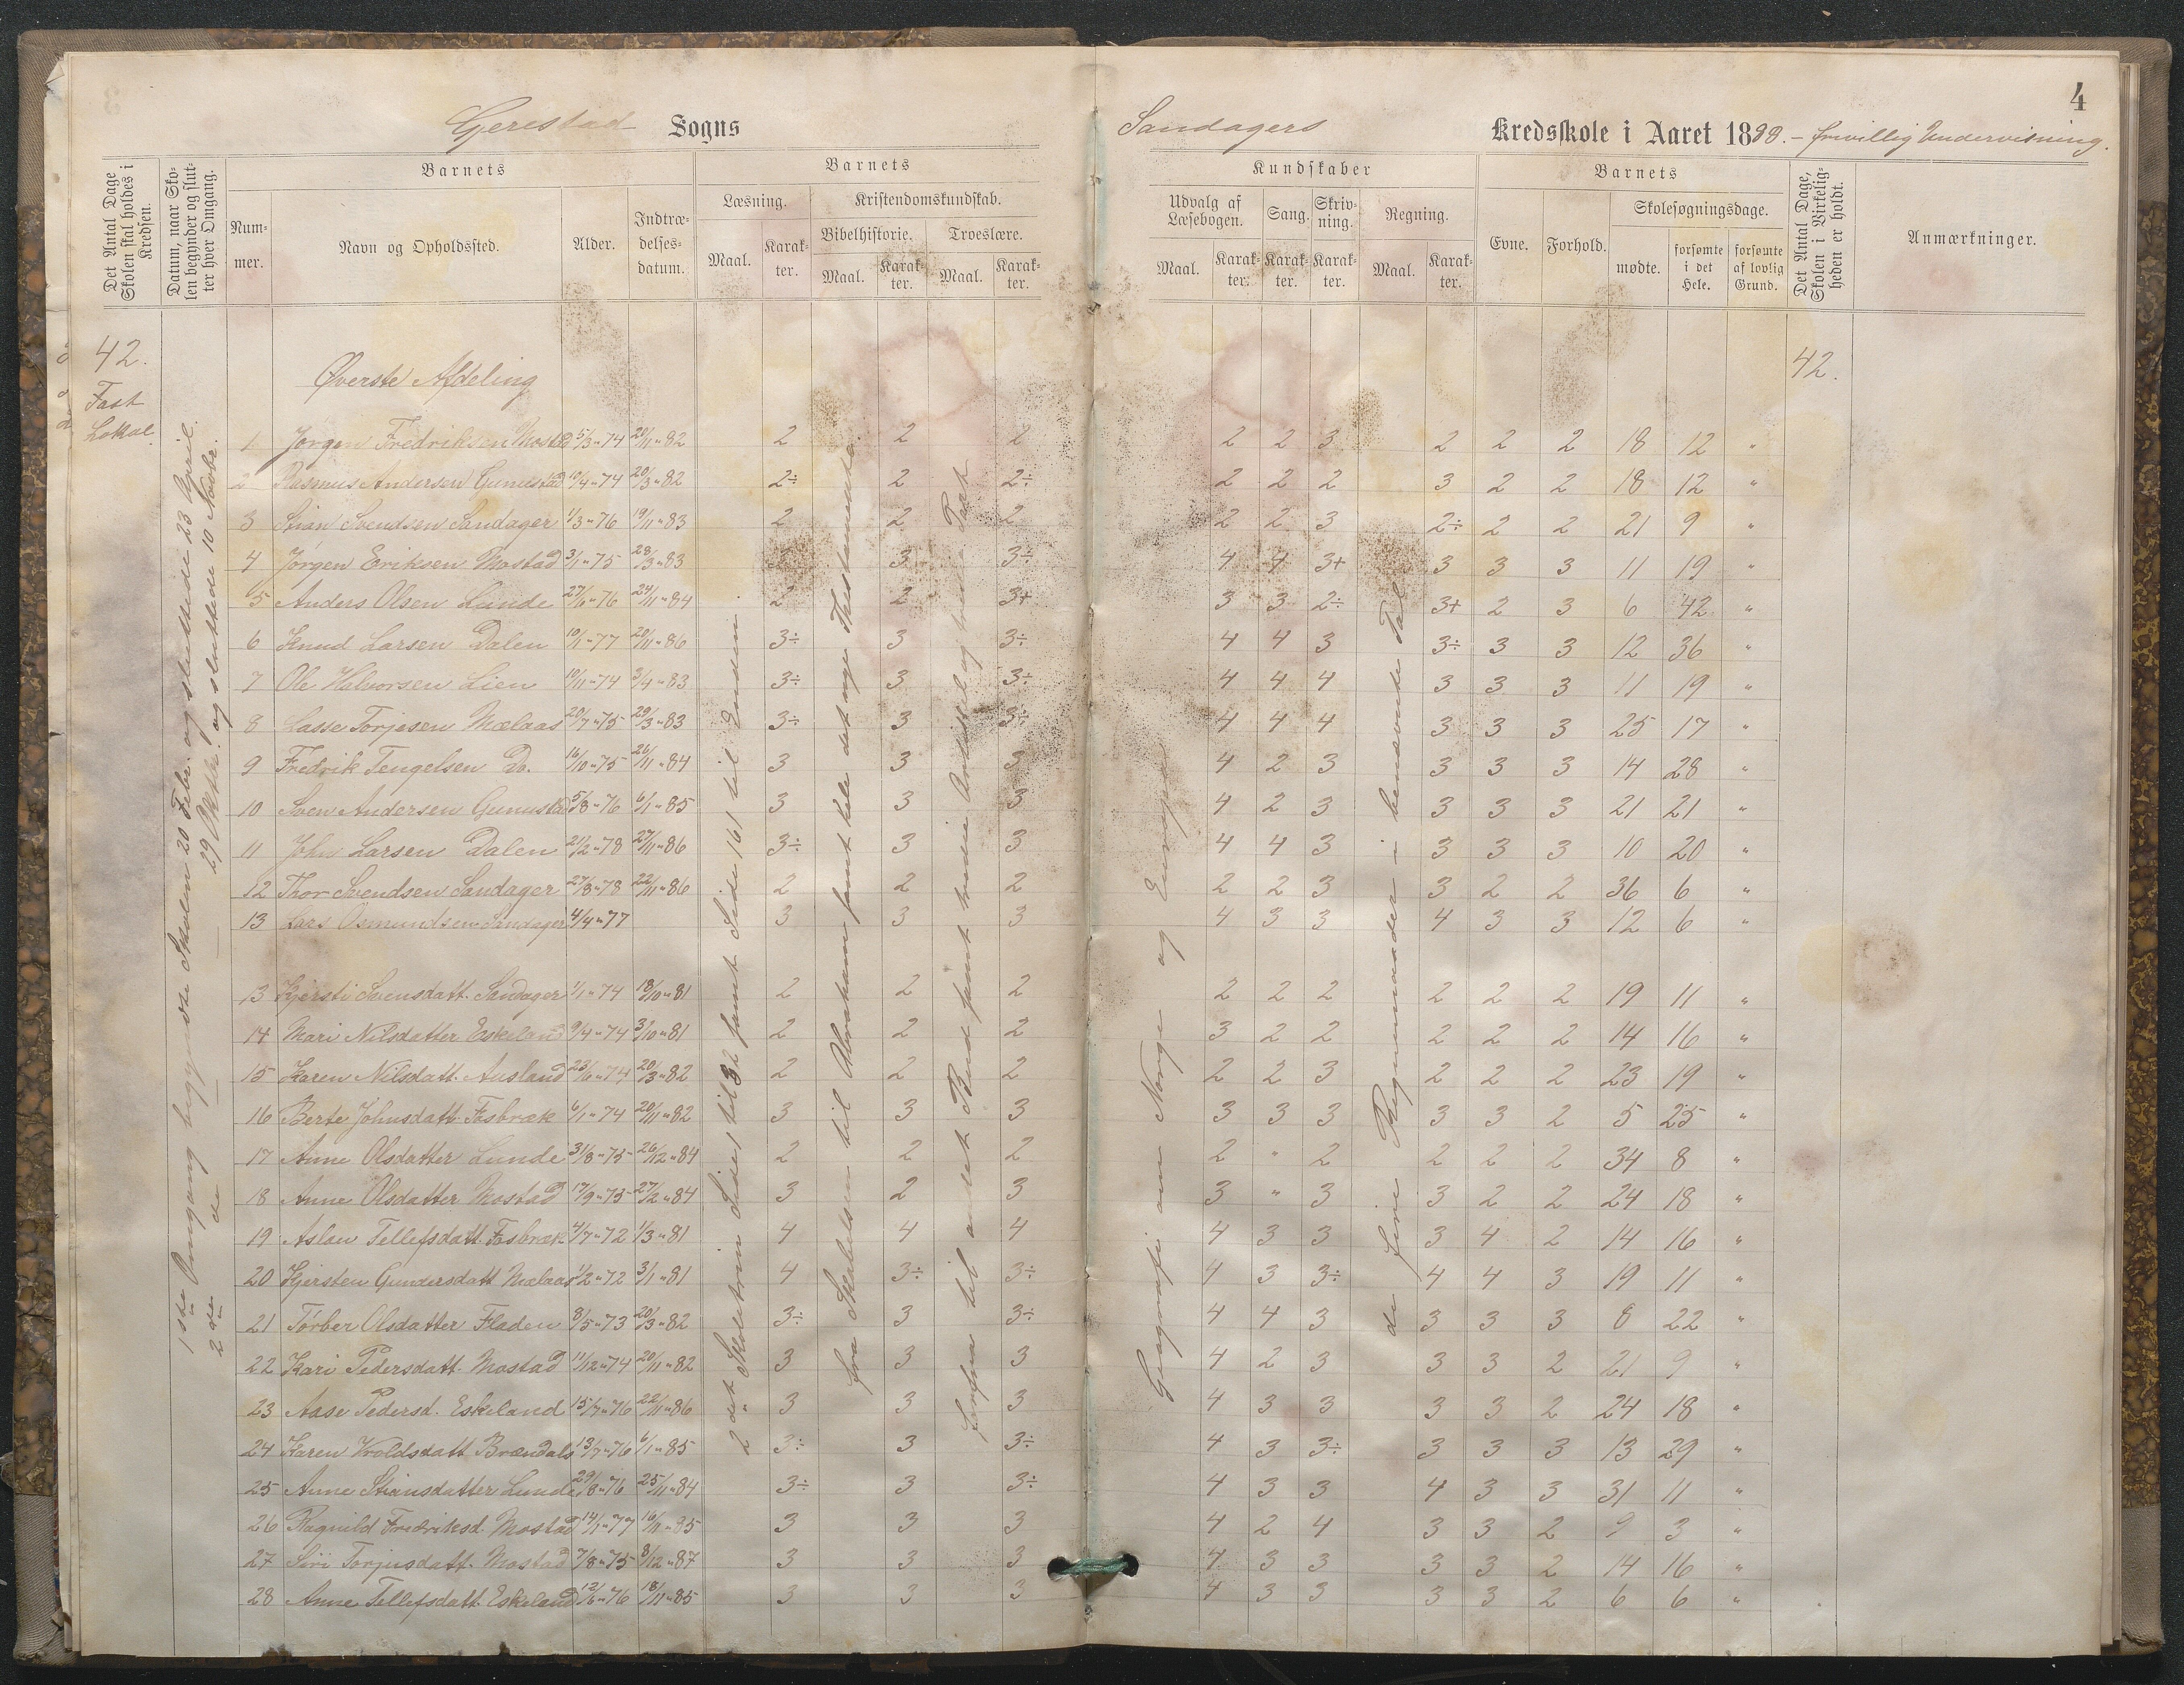 4
Gjerestad Sogns Sandagers Kredsskole i Aaret 1888. – frivillig Undervisning.
Det Antal Dage Skolen skal holdes i Kredsen.
Datum, naar Skolen begynder og slutter hver Omgang.
Barnets
Nummer.
Navn og Opholdssted.
Alder.
Indtrædelsesdatum.
Barnets
Læsning.
Maal.
Karakter.
Kristendomskundskab.
Bibelhistorie.
Maal.
Karakter.
Troeslære.
Maal.
Karakter.
Kundskaber
Udvalg af Læsebogen.
Maal.
Karakter.
Sang.
Karakter.
Skrivning.
Karakter.
Regning.
Maal.
Karakter.
Barnets
Evne.
Forhold.
Skolesøgningsdage.
mødte.
forsømte i det Hele.
forsømte af lovlig Grund.
Det Antal Dage, Skolen i Virkeligheden er holdt.
Anmærkninger.
42.
Fast
Lokal.
42.
Øverste Afdeling
1ste Omgang begyndte Skolen 20 Febr. og sluttede 23 April.
2den do 29 Oktbr. og sluttede 10 Novbr.
2det Skoletrin Side 1 til 32 samt Side 161 til Enden.
fra Skabelsen til Abraham samt hele det nye Thestamente.
forfra til andet Bud samt tredie Artikel og tredie Part
Geografi om Norge og Europa
de fire Regnemaader i benævnte Tal
1 Jørgen Fredriksen Mostad 5/3"74 20/11"82 2 2 2 2 2 3 2 2 2 18 12 "
2 Rasmus Andersen Gunnestad 10/4"74 20/3"82 2÷ 2 2÷ 2 2 2 3 2 2 18 12 "
3 Stian Svendsen Sandager 1/3"76 19/11"83 2 2 2 2 2 3 2÷ 2 2 21 9 "
4 Jørgen Eriksen Mostad 3/1"75 28/3"83 3 3÷ 4 4 3+ 3 3 3 11 19 "
5 Anders Olsen Lunde 27/6"76 24/11"84 2 2 3+ 3 3 2÷ 3+ 2 3 6 42 "
6 Knud Larsen Dalen 10/1"77 20/11"86 3÷ 3 3÷ 4 4 3 3÷ 3 3 12 36 "
7 Ole Halvorsen Lien 10/11"74 3/4"83 3÷ 3 3÷ 4 4 4 3 3 3 11 19 "
8 Lasse Torjesen Mælaas 20/7"75 29/3"83 3÷ 3 3÷ 4 4 4 3 3 3 25 17 "
9 Fredrik Tengelsen Do. 16/10"75 26/11"84 3 3 3 4 2 3 3 3 3 14 28 "
10 Sven Andersen Gunnestad 5/8"76 6/1"85 3 3 3 4 2 3 3 3 3 21 21 "
11 John Larsen Dalen 21/2"78 27/11"86 3÷ 3 3 4 4 3 3 3 3 10 20 "
12 Thor Svendsen Sandager 27/8"78 22/11"86 2 2 2 2 2 3 3 2 2 36 6 "
13 Lars Osmundsen Sandager 4/4"77 3 3 3 4 3 3 4 3 3 12 6 "
13 Kjersti Svensdatt. Sandager 1/1"74 18/10"81 2 2 2 2 2 2 2 2 2 19 11 "
14 Mari Nilsdatter Eskeland 9/4"74 3/10"81 2 2 2 3 2 2 2 2 2 14 16 "
15 Karen Nilsdatt. Ausland 23/6"74 20/3"82 2 2 2 2 2 3 2 2 2 23 19 "
16 Berte Johnsdatt. Fosbræk 6/1"74 20/11"82 3 3 3 3 3 3 3 3 2 5 25 "
17 Anne Olsdatter Lunde 31/8"75 26/12"84 2 2 2 2 " 2 2 2 2 34 8 "
18 Anne Olsdatter Mostad 17/9"75 27/2"84 3 2 3 3 " 3 3 2 2 24 18 "
19 Aslau Tellefsdatt. Fosbræk 4/7"72 1/3"81 4 4 4 4 3 3 3 4 2 14 16 "
20 Kjersten Gundersdatt Mælaas 1/2"72 3/1"81 4 3÷ 3÷ 4 3 3÷ 4 4 3 19 11 "
21 Torber Olsdatter Fladen 8/5"73 20/3"82 3÷ 3 3÷ 4 4 3 3 3 3 8 22 "
22 Kari Pedersdatt. Mostad 11/12"74 20/11"82 3 3 3 4 2 3 3 3 2 21 9 "
23 Aase Pedersd. Eskeland 15/7"76 22/11"86 3 3 3 4 3 3 3 3 2 24 18 "
24 Karen Wroldsdatt. Brændals 13/7"76 6/1"85 3÷ 3 3÷ 4 3 3÷ 3 3 3 13 29 "
25 Anne Stiansdatter Lunde 29/8"76 25/11"84 3÷ 3 3÷ 4 3 3 4 3 3 31 11 "
26 Ragnild Fredriksd. Mostad 14/1"77 16/11"85 3 3 3 4 2 4 3 3 2 9 3 "
27 Siri Torjusdatt. Mostad 7/8"75 8/12"87 3 3 3 4 3 3 3 3 2 14 16 "
28 Anne Tellefsdatt. Eskeland 12/6"76 18/11"85 3 3 3 4 3 3 3 3 2 6 6 "